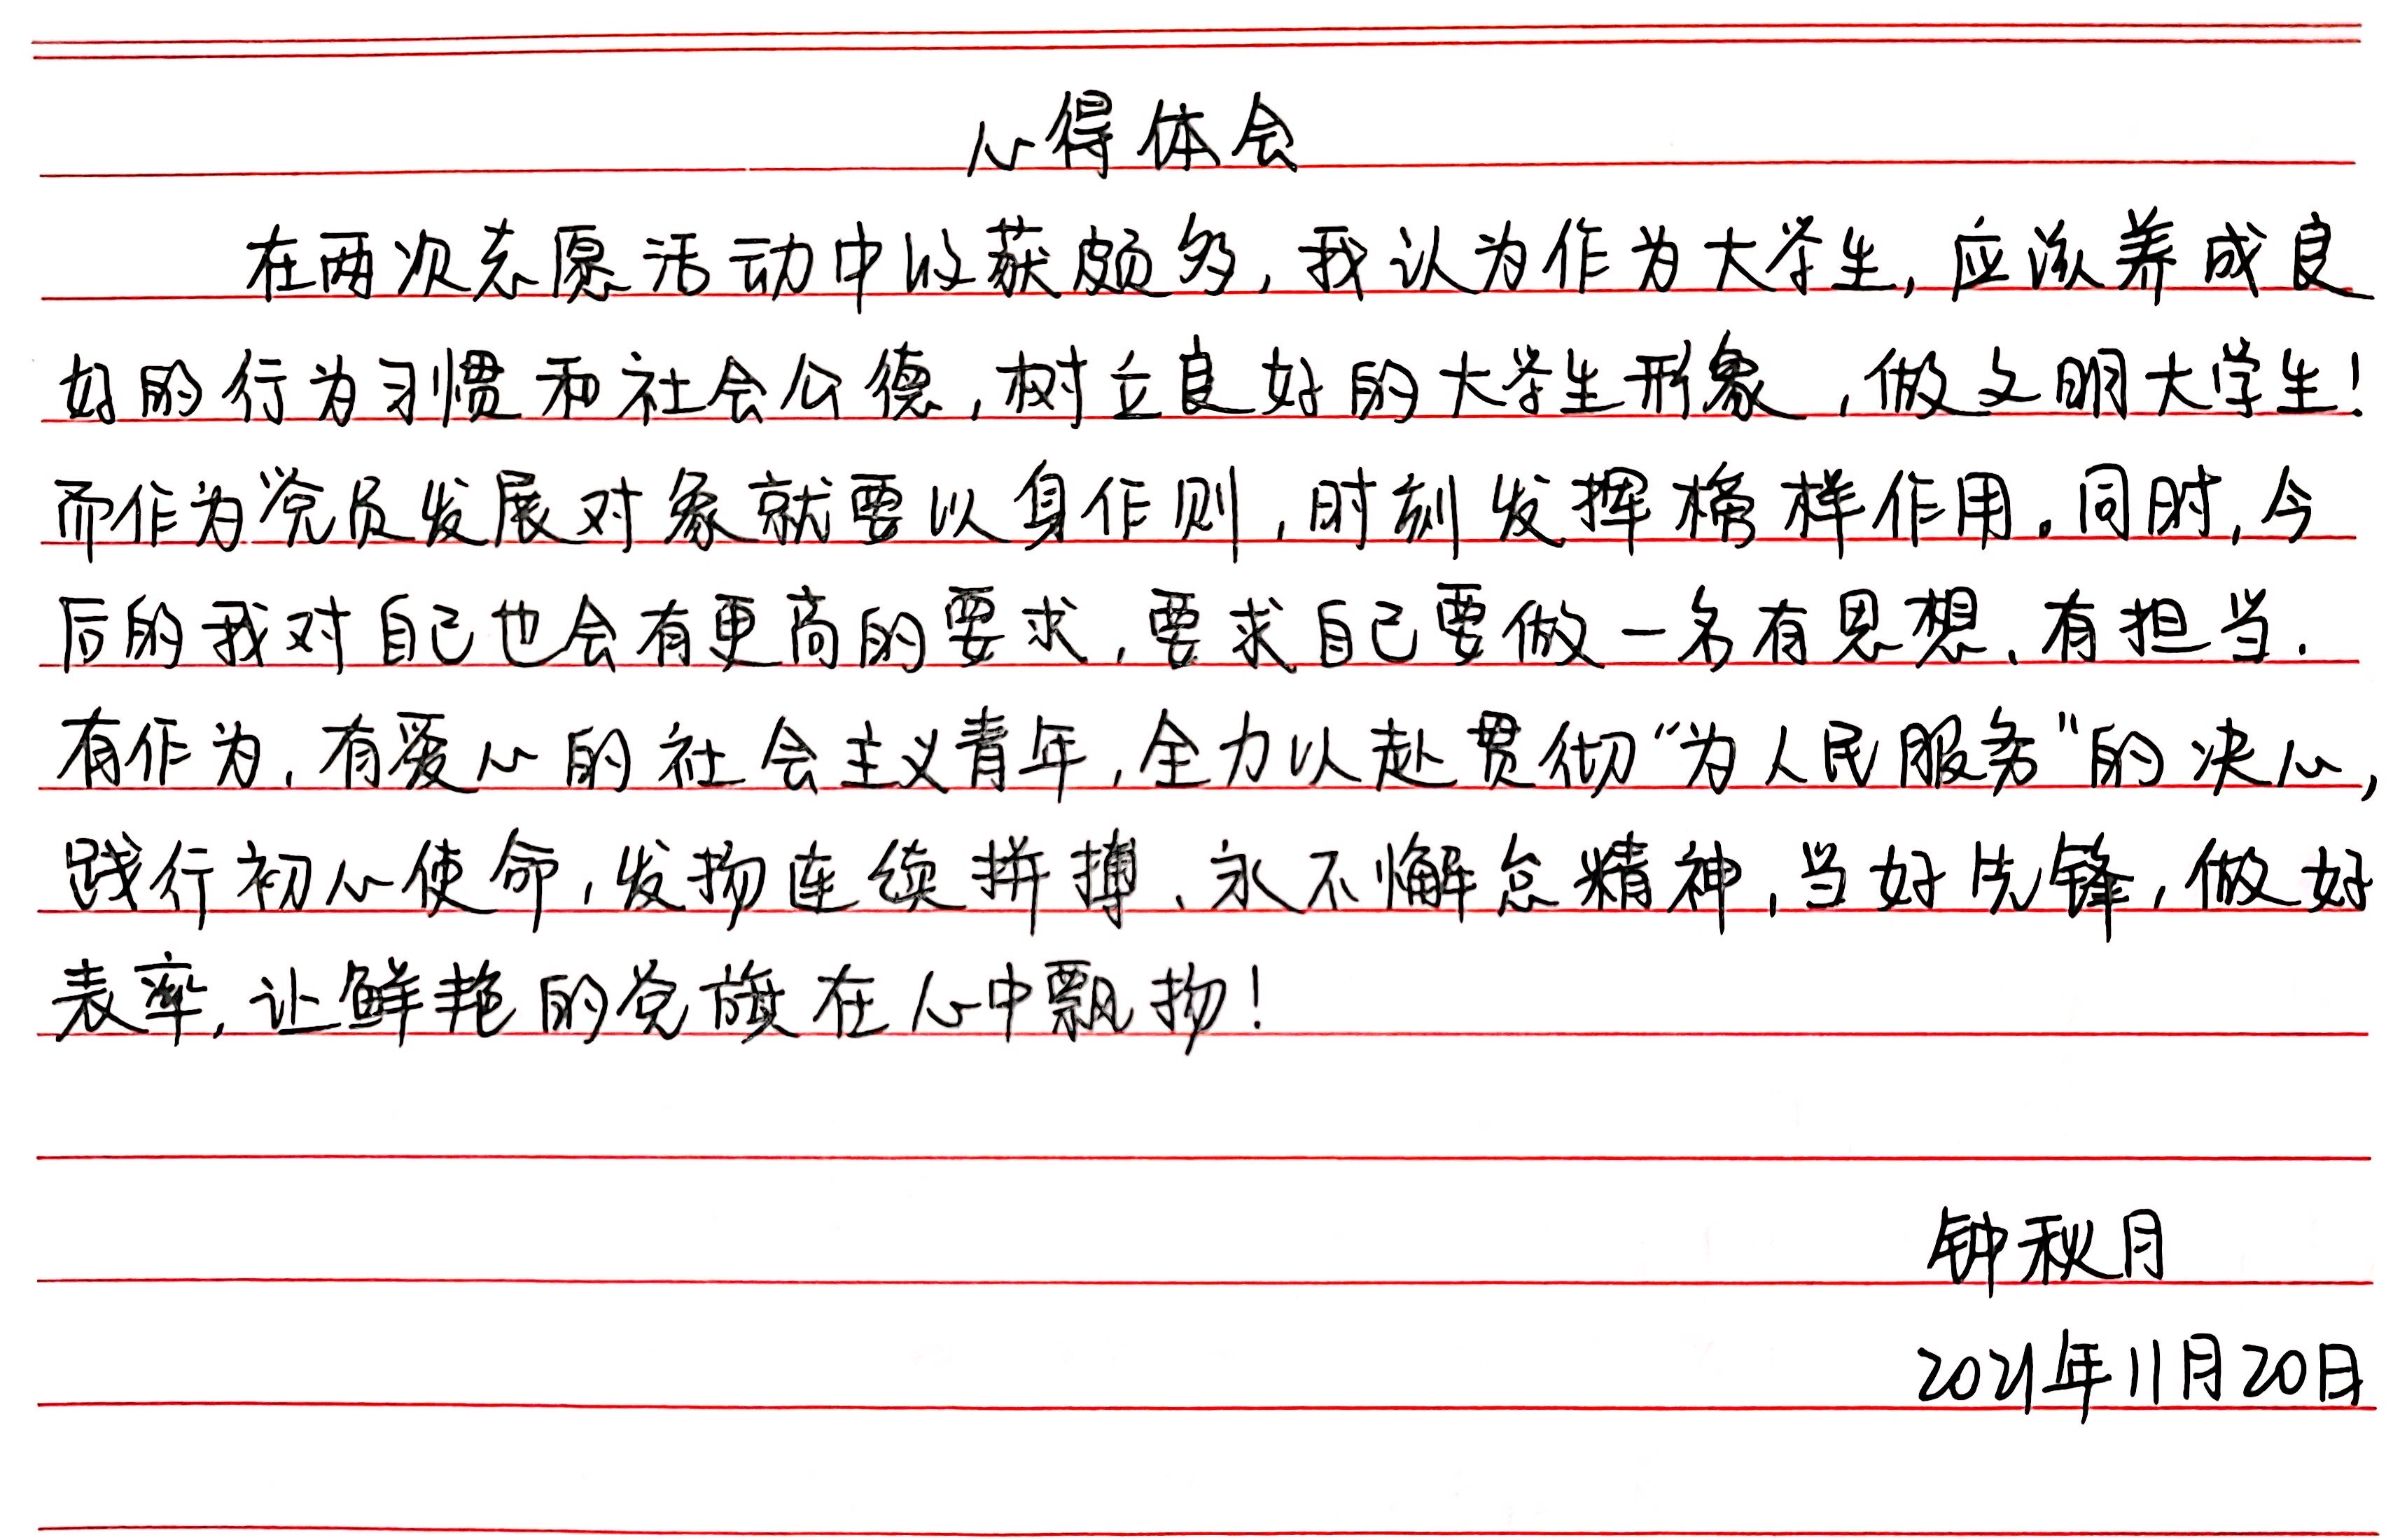 心得体会
在两次志愿活动中收获颇多,我认为作为大学生,应该养成良
好的行为习惯和社会公德,树立良好的大学生形象,做文明大学生!
而作为党员发展对象就要以身作则,时刻发挥榜样作用。同时,今
后的我对自己也会有更高的要求,要求自己要做一名有思想、有担当、
有作为、有爱心的社会主义青年,全力以赴贯彻“为人民服务”的决心,
践行初心使命,发扬连续拼搏、永不懈怠精神,当好先锋,做好
表率,让鲜艳的党旗在心中飘扬!
钟秋月
2021年11月20日